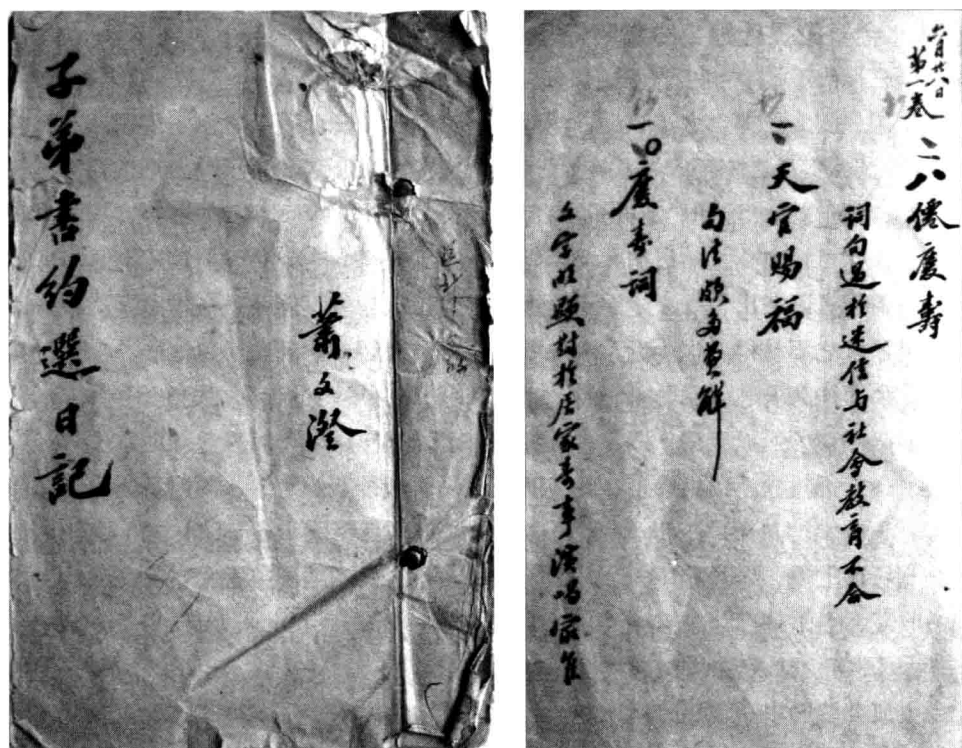 子弟書約選日記
蕭文澄
六月廿八日
第一卷
一、八僊慶壽
詞句過於迷信与社會教育不合
一、天官賜福
句法頗多費解
一〇慶寿詞
文字明顯對於居家寿事演唱